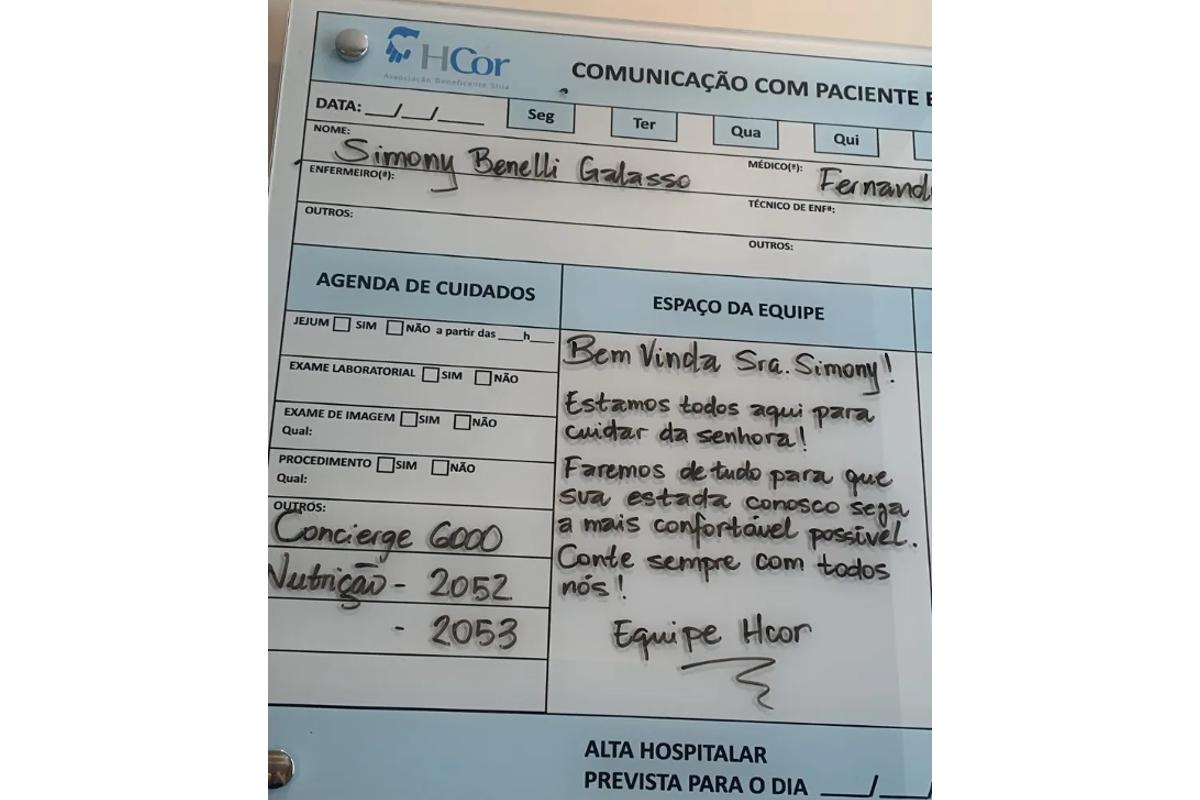 HCor
Associação Beneficente Síria
COMUNICAÇÃO COM PACIENTE E
DATA: __/__/____ Seg Ter Qua Qui
NOME: Simony Benelli Galasso
MÉDICO(ª): Fernand
ENFERMEIRO(ª):
TÉCNICO DE ENFª:
OUTROS:
OUTROS:
AGENDA DE CUIDADOS
JEJUM ☐ SIM ☐ NÃO a partir das ____h____
EXAME LABORATORIAL ☐ SIM ☐ NÃO
EXAME DE IMAGEM ☐ SIM ☐ NÃO
Qual:
PROCEDIMENTO ☐ SIM ☐ NÃO
Qual:
OUTROS:
Concierge 6000
Nutrição - 2052
- 2053
ESPAÇO DA EQUIPE
Bem Vinda Sra. Simony!
Estamos todos aqui para
cuidar da senhora!
Faremos de tudo para que
sua estada conosco seja
a mais confortável possível.
Conte sempre com todos
nós!
Equipe Hcor
ALTA HOSPITALAR
PREVISTA PARA O DIA ____/__